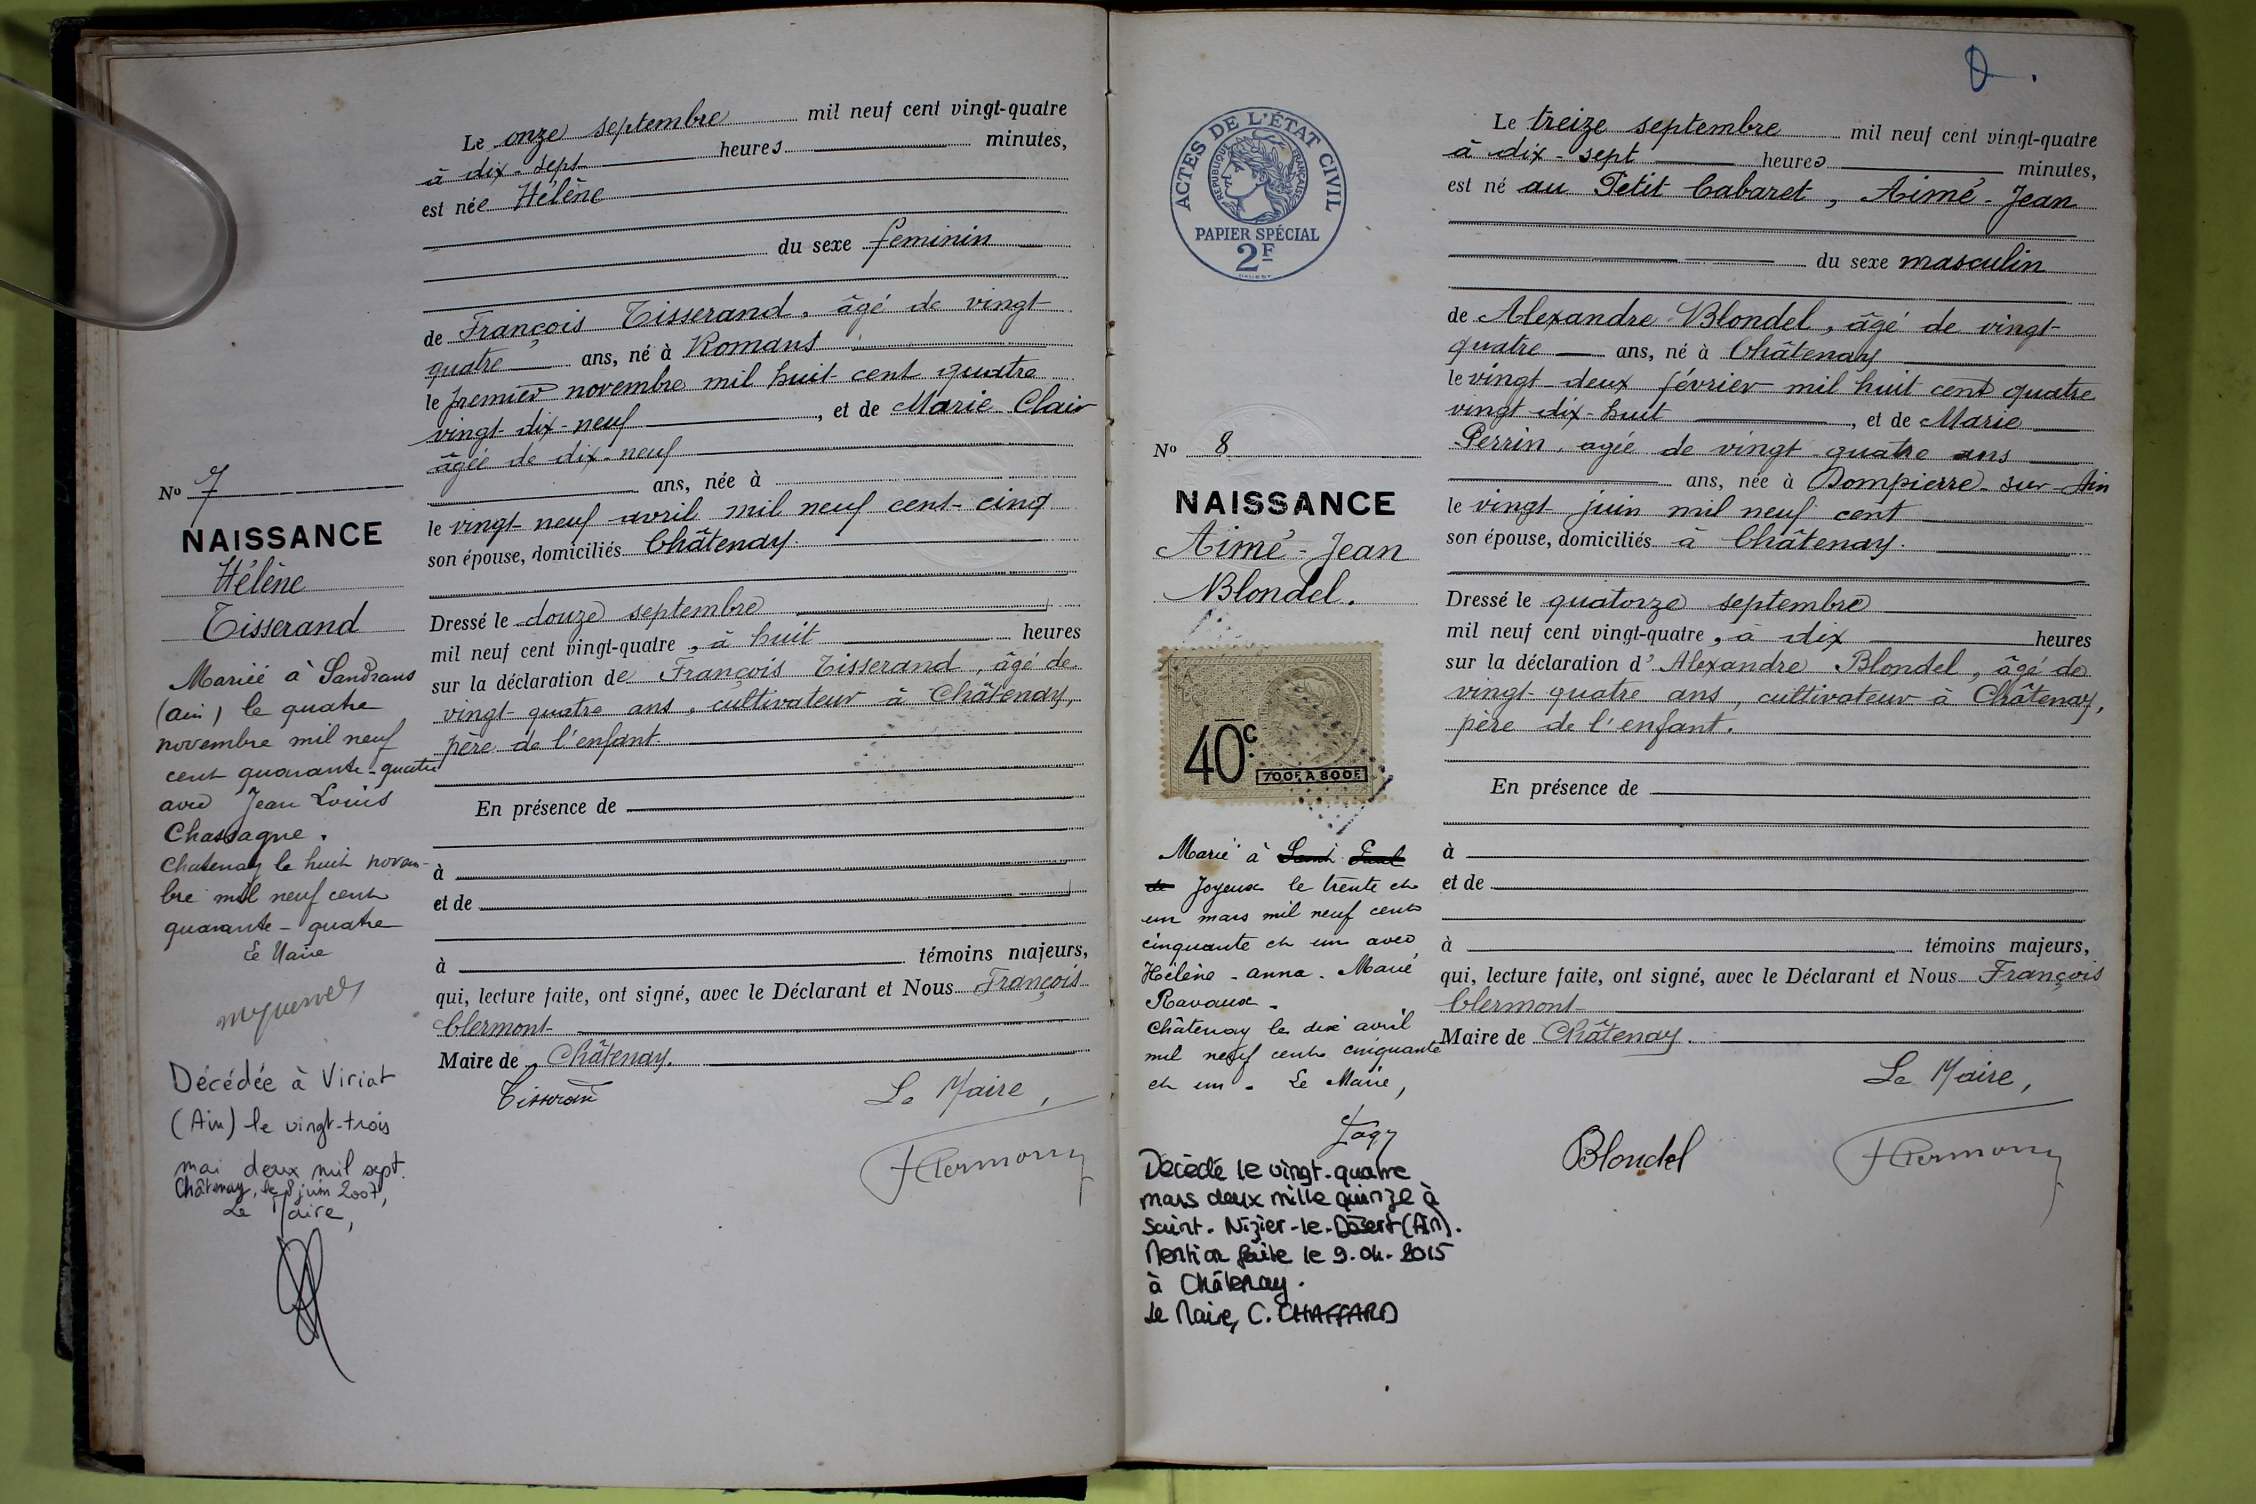 Le onze septembre mil neuf cent vingt-quatre
à dix-sept heures minutes,
est née Hélène
du sexe feminin
de François Tisserand, âgé de vingt
quatre ans, né à Romans
le premier novembre mil huit cent quatre
vingt dix-neuf, et de Marie Clair
âgée de dix-neuf
ans, née à
le vingt neuf avril mil neuf cent cinq
son épouse, domiciliés Châtenay.
Dressé le douze septembre
mil neuf cent vingt-quatre, à huit heures
sur la déclaration de François Tisserand, âgé de
vingt-quatre ans, cultivateur à Châtenay,
père de l'enfant
En présence de
à
et de
à témoins majeurs,
qui, lecture faite, ont signé, avec le Déclarant et Nous François
Clermont
Maire de Châtenay.
Le Maire,
Tisserand
FClermont
No 7
NAISSANCE
Hélène
Tisserand
Mariée à Sandrans
(Ain) le quatre
novembre mil neuf
cent quarante-quatre
avec Jean Louis
Chassagne.
Chatenay le huit novem-
bre mil neuf cent
quarante-quatre
Le Maire
Décédée à Viriat
(Ain) le vingt-trois
mai deux mil sept.
Châtenay, le 8 juin 2007,
Le Maire,
ACTES DE L'ÉTAT CIVIL
RÉPUBLIQUE FRANÇAISE
PAPIER SPÉCIAL
2F
No 8
NAISSANCE
Aimé-Jean
Blondel.
40c
700F. A 800F.
Marié à Saint Paul
de Joyeux le trente et
un mars mil neuf cent
cinquante et un avec
Hélène-Anna-Marie
Ravaux-
Châtenay le dix avril
mil neuf cent cinquante
et un. Le Maire,
Décédé le vingt-quatre
mars deux mille quinze à
Saint-Nizier-le-Désert (Ain).
Mention faite le 9.04.2015
à Châtenay.
Le Maire, C. CHAFFARD
Le treize septembre mil neuf cent vingt-quatre
à dix-sept heures minutes,
est né au Petit Cabaret, Aimé-Jean
du sexe masculin
de Alexandre Blondel, âgé de vingt-
quatre ans, né à Châtenay
le vingt-deux février mil huit cent quatre
vingt dix-huit, et de Marie
Perrin, agée de vingt quatre ans
ans, née à Dompierre-sur-Ain
le vingt juin mil neuf cent
son épouse, domiciliés à Châtenay.
Dressé le quatorze septembre
mil neuf cent vingt-quatre, à dix heures
sur la déclaration d'Alexandre Blondel, âgé de
vingt-quatre ans, cultivateur à Châtenay,
père de l'enfant.
En présence de
à
et de
à témoins majeurs,
qui, lecture faite, ont signé, avec le Déclarant et Nous François
Clermont
Maire de Châtenay.
Le Maire,
Blondel
FClermont